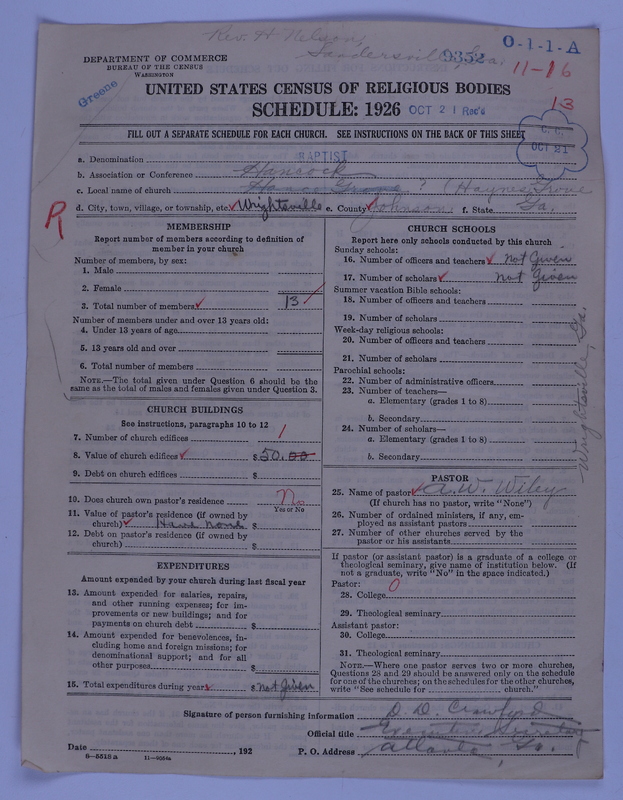 Rev. H. Nelson,
Sandersville, Ga.
9352
O-1-1-A
11-16
13
DEPARTMENT OF COMMERCE
BUREAU OF THE CENSUS
WASHINGTON
Greene
UNITED STATES CENSUS OF RELIGIOUS BODIES
SCHEDULE: 1926 OCT 21 Rec'd
FILL OUT A SEPARATE SCHEDULE FOR EACH CHURCH. SEE INSTRUCTIONS ON THE BACK OF THIS SHEET
OCT 21
a. Denomination BAPTIST
b. Association or Conference Hancock
c. Local name of church Grove ? (Haynes Grove
d. City, town, village, or township, etc. Wrightsville e. County Johnson f. State Ga,
MEMBERSHIP
Report number of members according to definition of
member in your church
Number of members, by sex:
1. Male
2. Female
3. Total number of members 13
Number of members under and over 13 years old:
4. Under 13 years of age
5. 13 years old and over
6. Total number of members
NOTE.—The total given under Question 6 should be the
same as the total of males and females given under Question 3.
CHURCH BUILDINGS
See instructions, paragraphs 10 to 12
7. Number of church edifices 1
8. Value of church edifices $50.00
9. Debt on church edifices $
10. Does church own pastor's residence No
Yes or No
11. Value of pastor's residence (if owned by
church) Have none $
12. Debt on pastor's residence (if owned by
church) $
EXPENDITURES
Amount expended by your church during last fiscal year
13. Amount expended for salaries, repairs,
and other running expenses; for im-
provements or new buildings; and for
payments on church debt $
14. Amount expended for benevolences, in-
cluding home and foreign missions; for
denominational support; and for all
other purposes $
15. Total expenditures during year $ Not Given
CHURCH SCHOOLS
Report here only schools conducted by this church
Sunday schools:
16. Number of officers and teachers Not Given
17. Number of scholars Not Given
Summer vacation Bible schools:
18. Number of officers and teachers
19. Number of scholars
Week-day religious schools:
20. Number of officers and teachers
21. Number of scholars
Parochial schools:
22. Number of administrative officers
23. Number of teachers—
a. Elementary (grades 1 to 8)
b. Secondary
24. Number of scholars—
a. Elementary (grades 1 to 8)
b. Secondary
Wrightsville, Ga.
PASTOR
25. Name of pastor A. W. Wiley
(If church has no pastor, write "None")
26. Number of ordained ministers, if any, em-
ployed as assistant pastors
27. Number of other churches served by the
pastor or his assistants
If pastor (or assistant pastor) is a graduate of a college or
theological seminary, give name of institution below. (If
not a graduate, write "No" in the space indicated.)
Pastor: 0
28. College
29. Theological seminary
Assistant pastor:
30. College
31. Theological seminary
NOTE.—Where one pastor serves two or more churches,
Questions 28 and 29 should be answered only on the schedule
for one of the churches; on the schedules for the other churches,
write "See schedule for church."
Signature of person furnishing information D. D. Crawford
Official title Executive Secretary
Date , 192 P. O. Address Atlanta, Ga.
8—5518 a 11—9084a